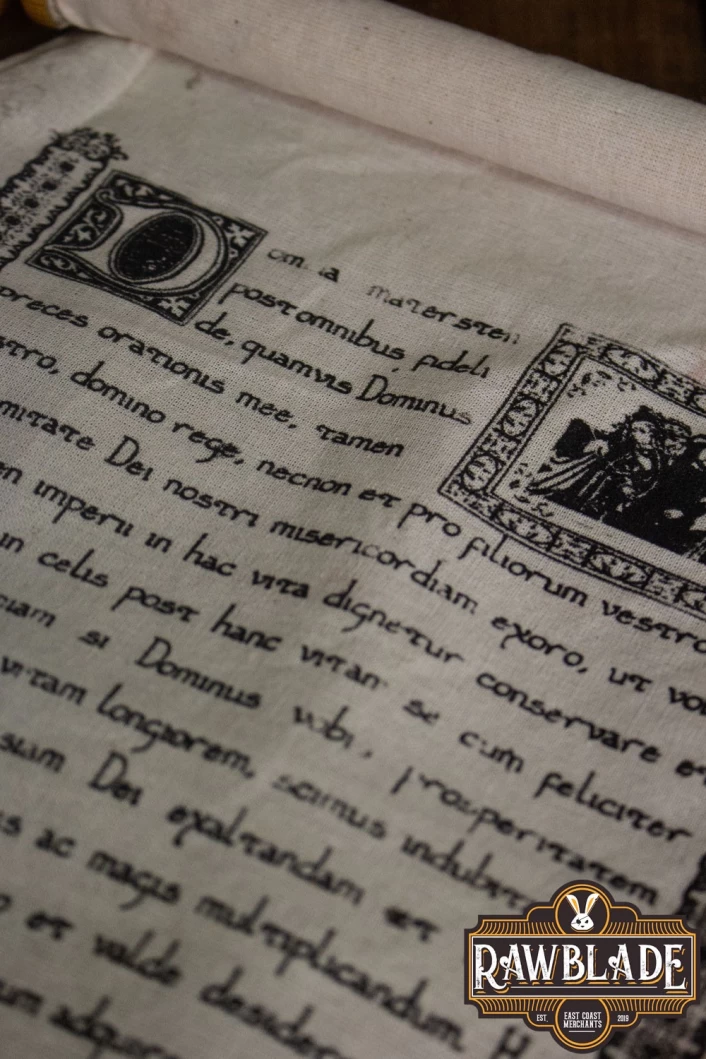 D mater
post omnibus fideli
de, quamvis Dominus
preces orationis mee, tamen
stro, domino rege, necnon et pro filiorum vestro
mitate Dei nostri misericordiam exoro, ut vo
en imperii in hac vita dignetur conservare et
in celis post hanc vitam se cum feliciter
ciam si Dominus vobi, prosperitatem
vitam longiorem, scimus indubit
siam Dei exaltandam et
s ac magis multiplicandum. H
o et valde desider
um adquir
RAWBLADE
EST. EAST COAST MERCHANTS 2019